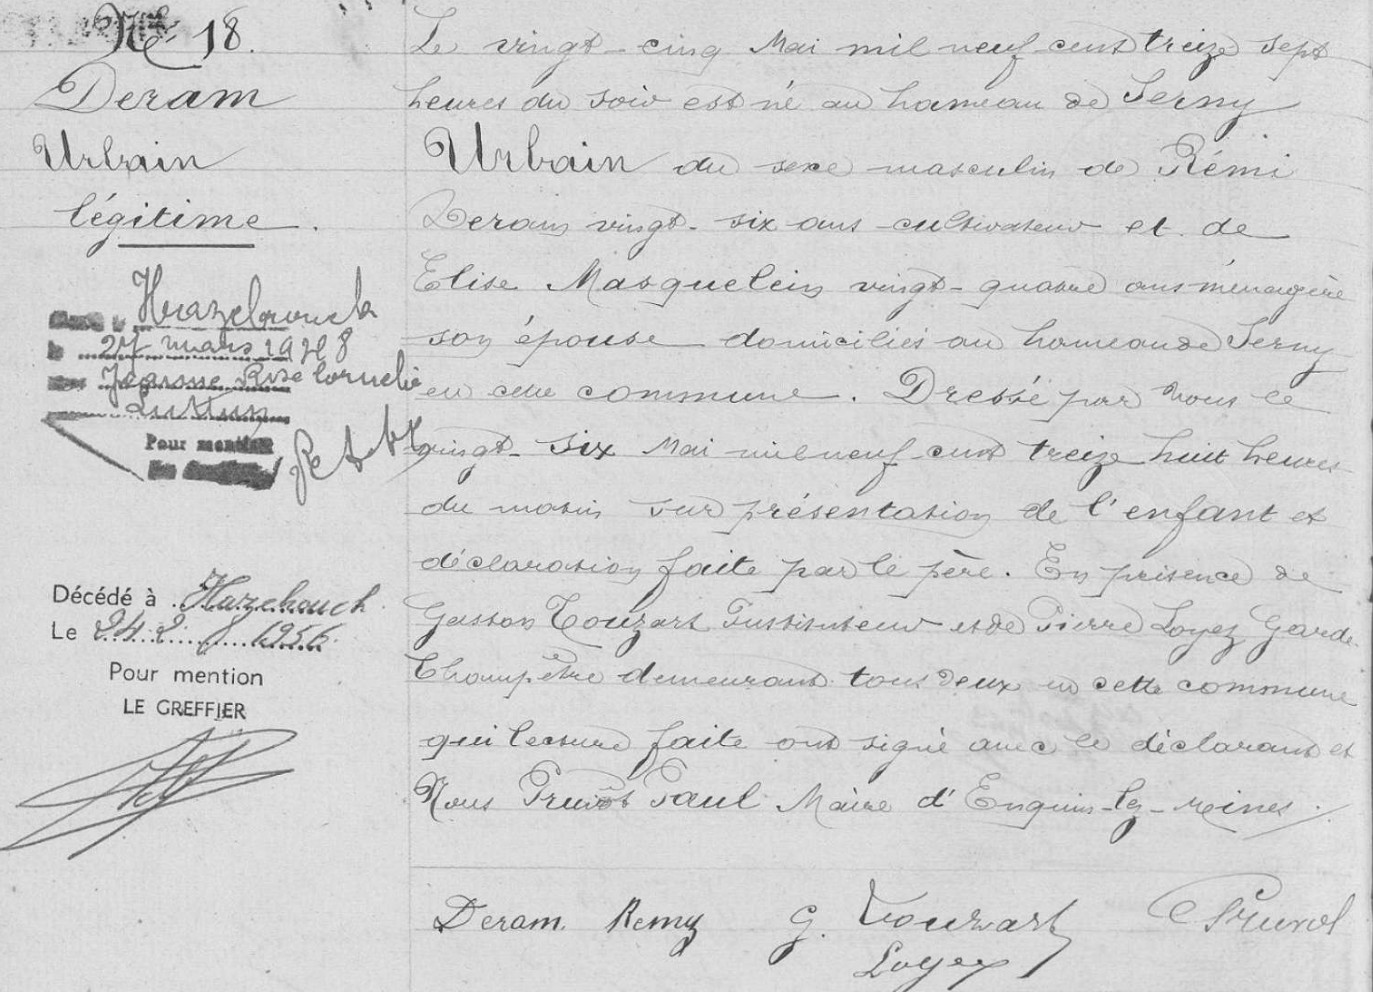 Né 18.
Deram
Urbain
légitime.
Hazebrouck
le 27 mars 1948
Jeanne Rose Cornélie
Pour mention
Décédé à Hazebrouck
Le 24.2.1956
Pour mention
LE GREFFIER
Le vingt-cinq Mai mil neuf cent treize sept
heures du soir est né au hameau de Serny
Urbain du sexe masculin de Rémi
Deram vingt-six ans cultivateur et de
Elise Masquelein vingt-quatre ans ménagère
son épouse domiciliés au hameau de Serny
en cette commune. Dressé par nous le
vingt-six Mai mil neuf cent treize huit heures
du matin sur présentation de l'enfant et
déclaration faite par le père. En présence de
Gaston Touzart Instituteur et de Pierre Loyez Garde
Champêtre demeurant tous deux en cette commune
qui lecture faite ont signé avec le déclarant et
Nous Pruvôt Paul Maire d'Enquin-lez-mines.
Deram Remy G. Touzart Pruvot
Loyez